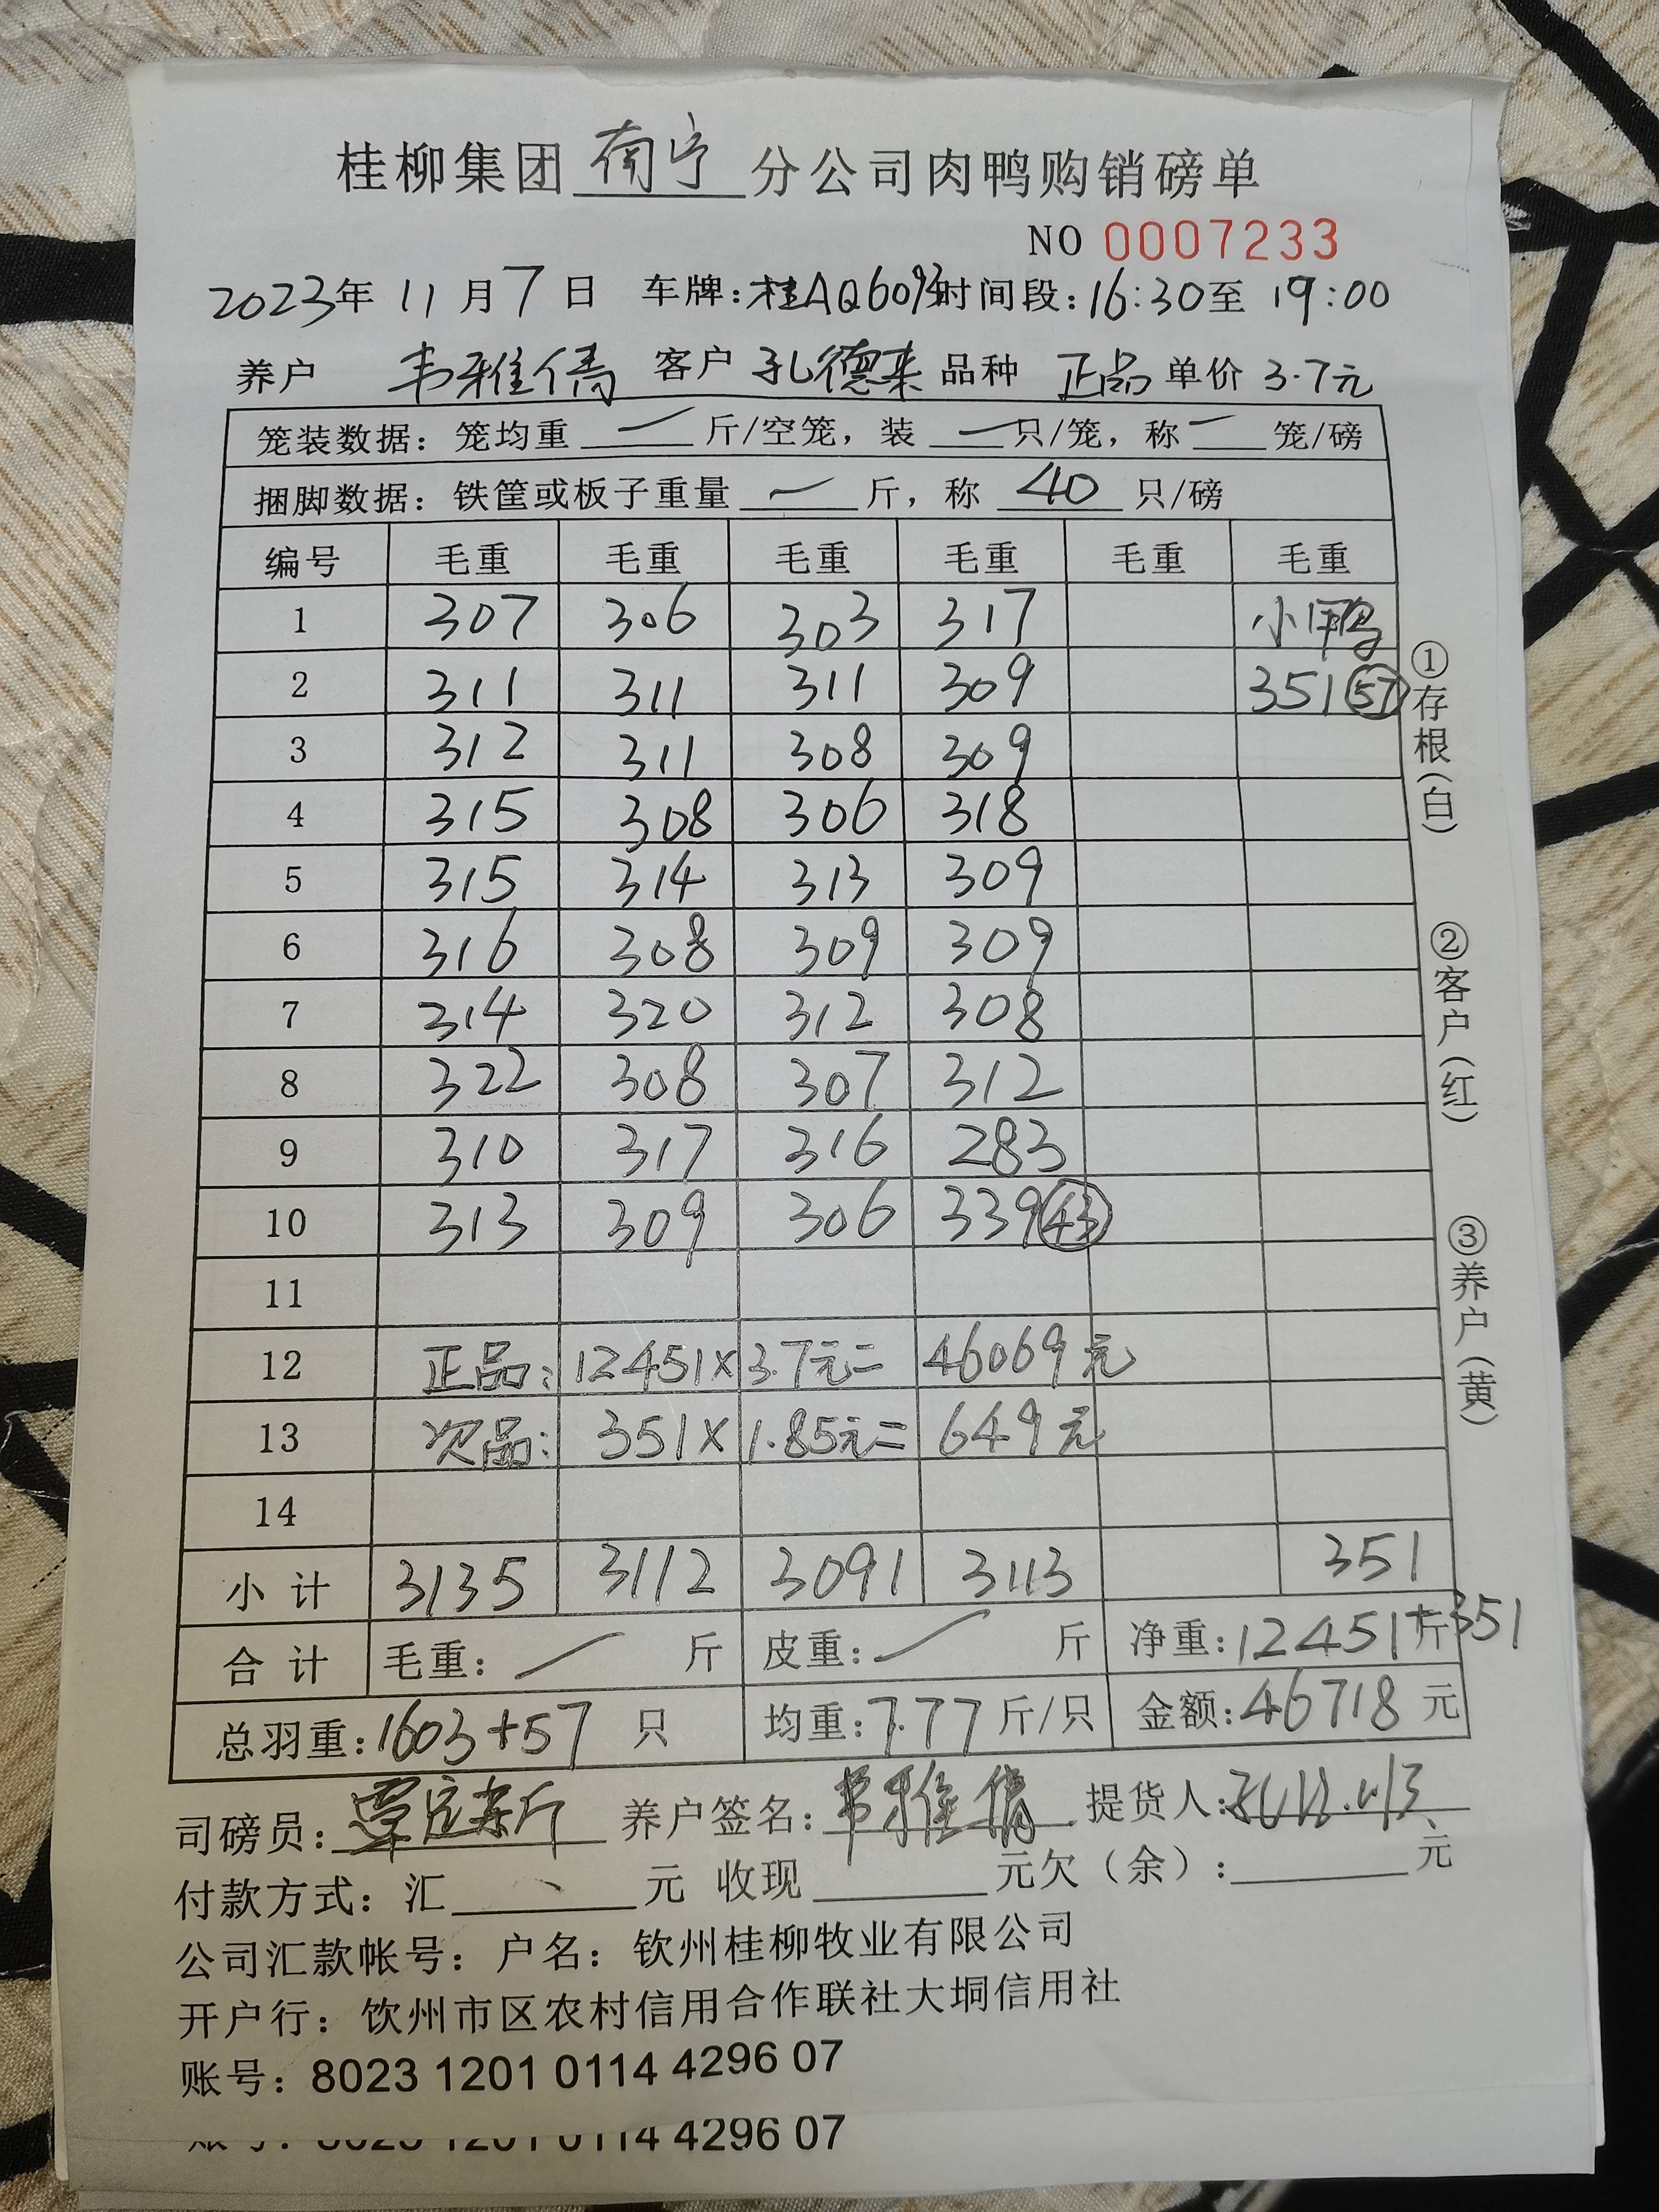 桂柳集团 南宁 分公司肉鸭购销磅单
NO 0007233
2023年 11 月 7 日 车牌:桂AQ609 时间段:16:30至 19:00
养户 韦雅倩 客户 孔德来 品种 正品 单价 3.7元
笼装数据: 笼均重 — 斤/空笼, 装 — 只/笼, 称 — 笼/磅
捆脚数据: 铁筐或板子重量 — 斤, 称 40 只/磅
编号 毛重 毛重 毛重 毛重 毛重 毛重
1 307 306 303 317 小鸭
2 311 311 311 309 351 57
3 312 311 308 309
4 315 308 306 318
5 315 314 313 309
6 316 308 309 309
7 314 320 312 308
8 322 308 307 312
9 310 317 316 283
10 313 309 306 339 43
11
12 正品: 12451× 3.7元= 46069元
13 次品: 351× 1.85元= 649元
14
小 计 3135 3112 3091 3113 351
合 计 毛重: / 斤 皮重: / 斤 净重:12451斤+351
总羽重:1603+57 只 均重:7.77斤/只 金额:46718 元
司磅员: 覃 养户签名: 韦雅倩 提货人:孔
付款方式: 汇 、 元 收现 元欠(余): 元
公司汇款帐号: 户名: 钦州桂柳牧业有限公司
开户行: 钦州市区农村信用合作联社大垌信用社
账号: 8023 1201 0114 4296 07
账号: 8023 1201 0114 4296 07
①存根(白)
②客户(红)
③养户(黄)